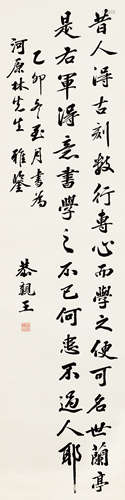 昔人得古刻數行專心而學之便可名世蘭亭
是右軍得意書學之不已何患不過人耶
乙卯冬至月書為
河原林先生雅鑒
恭親王